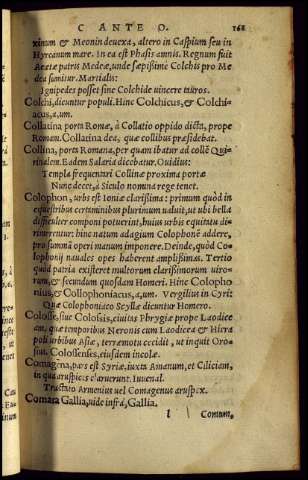 CANTE O. 161
xinum & Meonin deuexa, altero in Caspium seu in
Hyrcanum mare. In ea est Phasis amnis. Regnum fuit
Aeætæ patris Medeæ, unde sæpissime Colchis pro Me
dea sumitur. Martialis:
Ignipedes posset sine Colchide uincere tauros.
Colchi, dicuntur populi. Hinc Colchicus, & Colchi-
acus, a, um.
Collatina porta Romæ, à Collatio oppido dicta, prope
Romam. Collatina dea, quæ collibus præsidebat.
Collina, porta Romana, per quam ibatur ad collē Qui-
rinalem. Eadem Salaria dicebatur. Ouidius:
Templa frequentari Collinæ proxima portæ
Nunc decet, à Siculo nomina rege tenet.
Colophon, urbs est Ioniæ clarissima: primum quòd in
equestribus certaminibus plurimum ualuit, ut ubi bella
difficulter componi potuerint, huius urbis equitatu di-
rimerentur: hinc natum adagium Colophonē addere,
pro summā operi manum imponere. Deinde, quòd Co-
lophonij nauales opes haberent amplissimas. Tertio
quòd patria existeret multorum clarissimorum uiro-
rum, & secundum quosdam Homeri. Hinc Colopho
nius, & Collophoniacus, a, um. Vergilius in Cyri:
Quæ Colophoniaco Scyllæ dicuntur Homero.
Colosse, siue Colossis, ciuitas Phrygiæ prope Laodice
am, quæ temporibus Neronis cum Laodicea & Hiera
poli urbibus Asiæ, terræmotu occidit, ut inquit Oro-
sius. Colossenses, eiusdem incolæ.
Comagena, pars est Syriæ, iuxta Amanum, et Ciliciam,
in qua aruspices claruerunt. Iuuenal.
Armenius uel Comagenus aruspex.
Comata Gallia, uide infrà, Gallia.
l Comum,